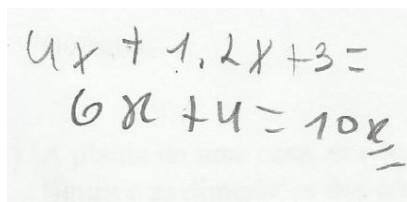 4x + 1.2x+3=
6x +4= 10x